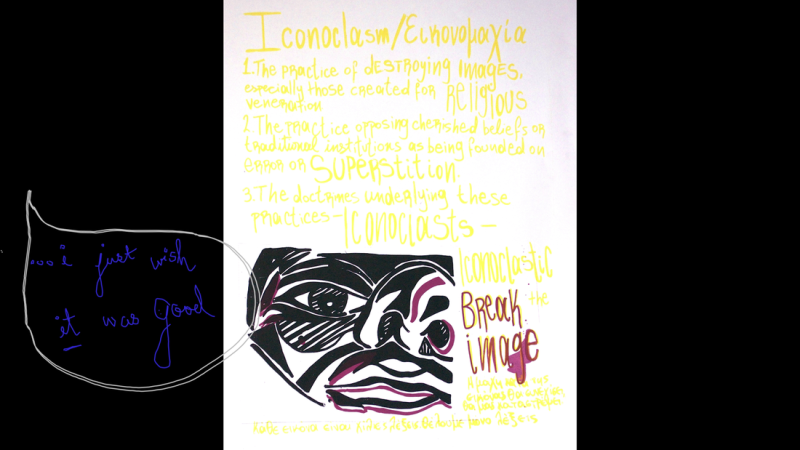 Iconoclasm/Εικονομαχία
1. The practice of dESTROYING Images,
especially those created for RELIGIOUS
veneration
2. The practice opposing cherished beliefs or
traditional institutions as being founded on
ERROR OR SUPERSTITION.
3. The doctrines underlying these
practices - ICONOCLASTS -
Iconoclastic
the
BREAK
image
...i just wish
it was good
Κάθε εικόνα είναι χίλιες λέξεις